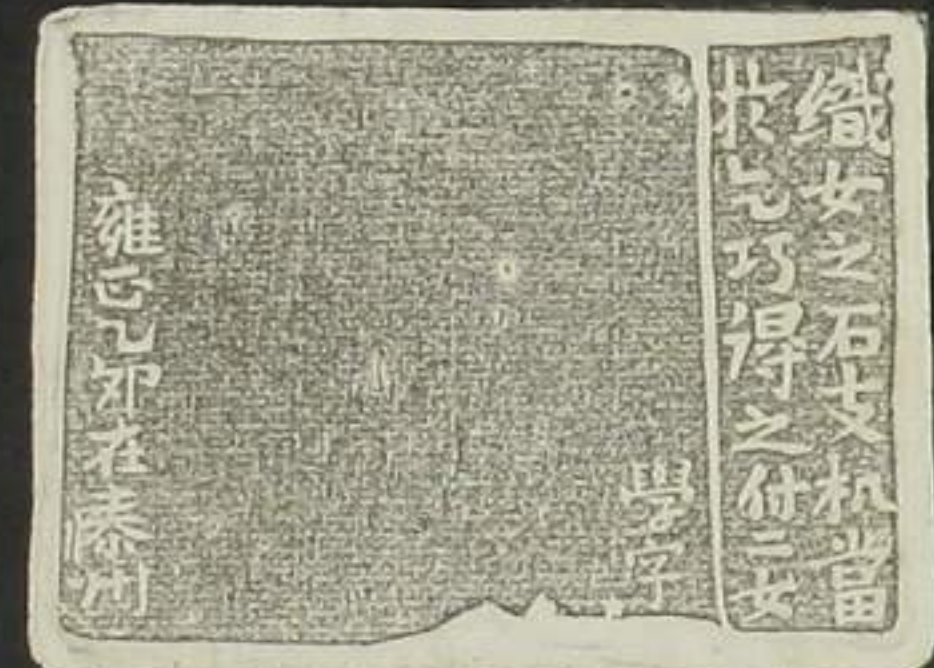 織女之石支机當
於乞巧得之付二女
學字
雍正乙卯在溙州